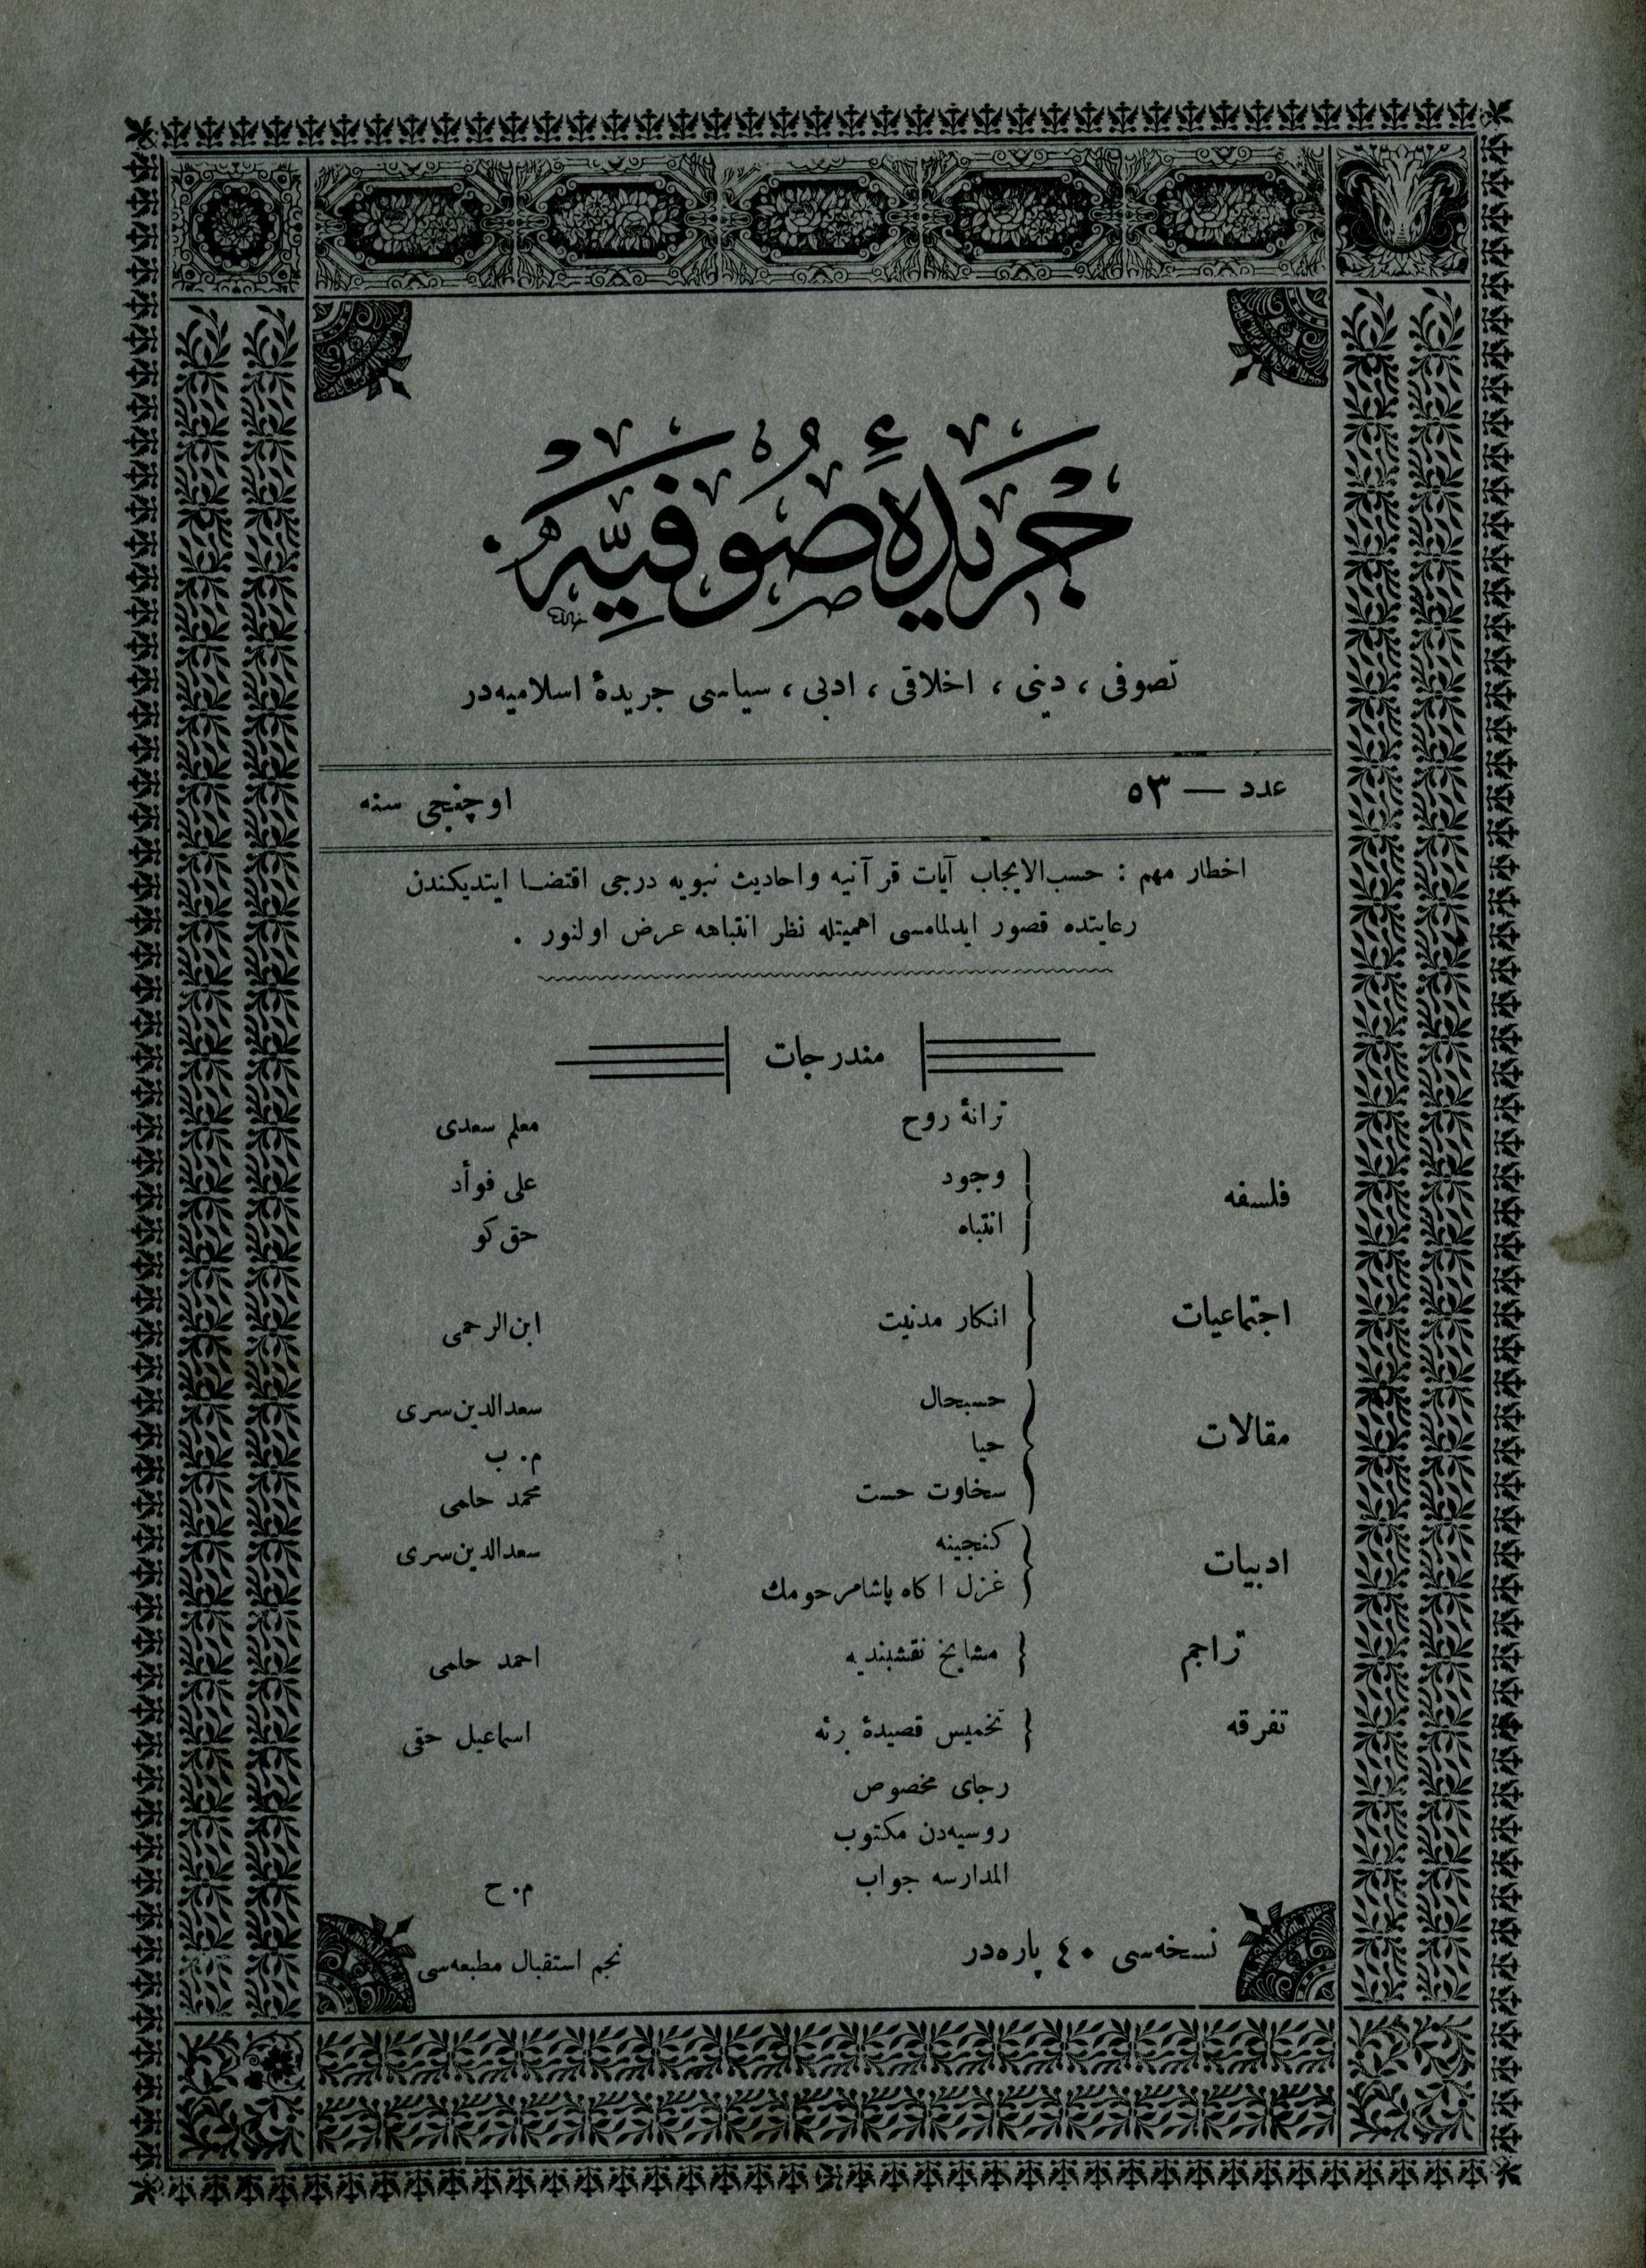 جريدۀ صوفيه
تصوفى ، دينى ، اخلاقى ، ادبى ، سياسى جريدۀ اسلاميه‌در
عدد — ٥٣
اوچنجى سنه
اخطار مهم : حسب‌الايجاب آيات قرآنيه واحاديث نبويه درجى اقتضا ايتديكندن
رعايتده قصور ايدلمامسى اهميتله نظر انتباهه عرض اولنور .
مندرجات
ترانۀ روح معلم سعدى
فلسفه
وجود على فوأد
انتباه حق كو
اجتماعيات انكار مدنيت ابن‌الرحمى
مقالات
حسبحال سعدالدين سرى
حيا م . ب
سخاوت حست محمد حلمى
ادبيات
كنجينه سعدالدين سرى
غزل ا كاه پاشامرحومك
تراجم مشايخ نقشبنديه احمد حلمى
تفرقه تخميس قصيدۀ برئه اسماعيل حقى
رجاى مخصوص
روسيه‌دن مكتوب
المدارسه جواب م . ح
نسخه‌سى ٤٠ پاره‌در
نجم استقبال مطبعه‌سى